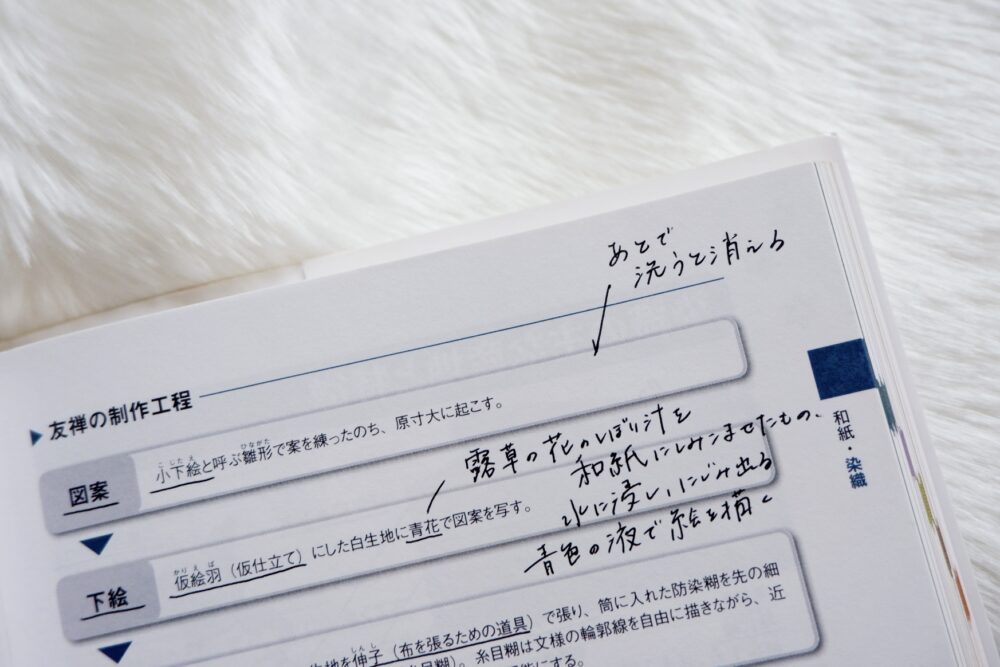 あとで
洗うと消える
友禅の制作工程
図案
小下絵と呼ぶ雛形で案を練ったのち、原寸大に起こす。
こしたえ
ひながた
露草の花のしぼり汁を
和紙にしみこませたもの、
水に浸し、にじみ出る
青色の液で絵を描く
下絵
仮絵羽(仮仕立て)にした白生地に青花で図案を写す。
かりえば
地を伸子(布を張るための道具)で張り、筒に入れた防染糊を先の細
しんし
糸目糊は文様の輪郭線を自由に描きながら、近
にする。
和紙・染織